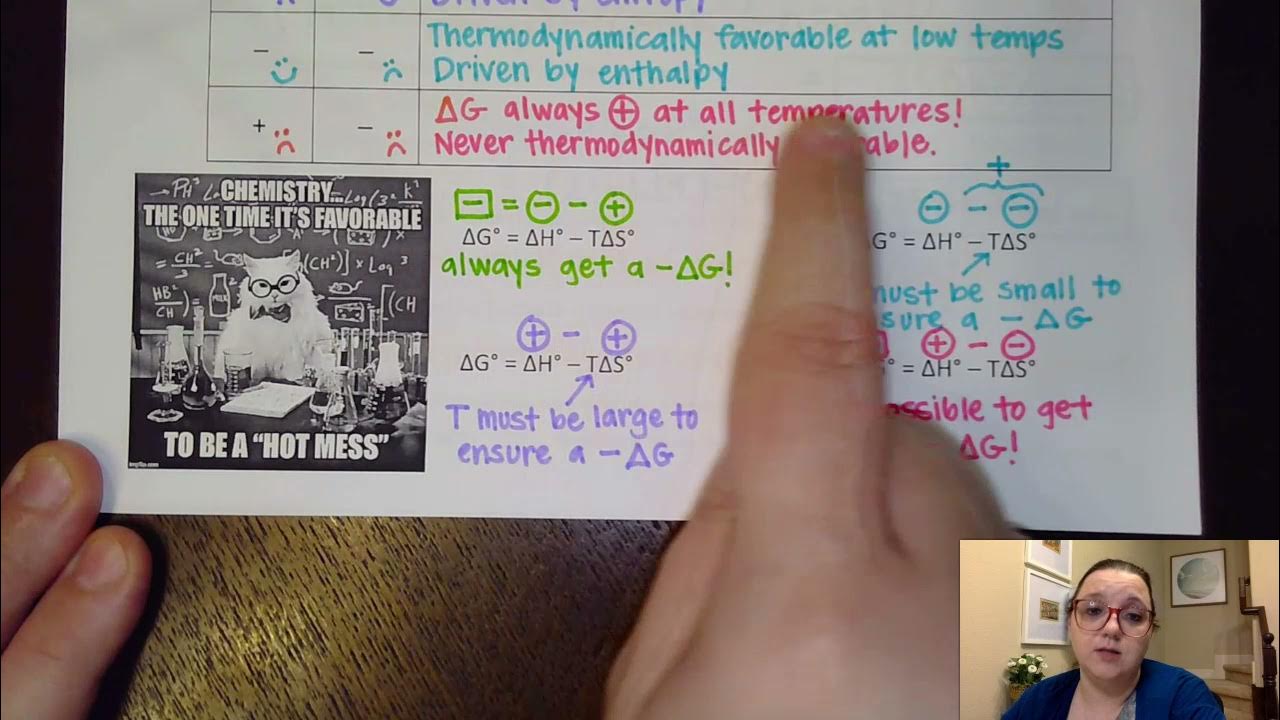 − −
Thermodynamically favorable at low temps
Driven by enthalpy
+ −
ΔG always ⊕ at all temperatures!
Never thermodynamically
CHEMISTRY...
THE ONE TIME IT'S FAVORABLE
TO BE A "HOT MESS"
⊟ = ⊖ − ⊕
ΔG° = ΔH° − TΔS°
always get a −ΔG!
⊕ − ⊕
ΔG° = ΔH° − TΔS°
T must be large to
ensure a −ΔG
+
⊖ − ⊖
G° = ΔH° − TΔS°
must be small to
a − ΔG
⊕ − ⊖
° = ΔH° − TΔS°
to get
ΔG!